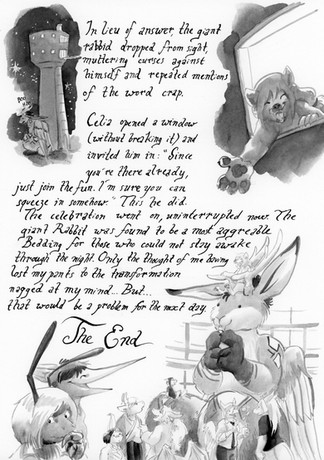 In lieu of answer, the giant
rabbid dropped from sight,
muttering curses against
himself and repeated mentions
of the word crap.
Celia opened a window
(without breaking it) and
invited him in: "Since
you're there already,
just join the fun. I'm sure you can
squeeze in somehow." This he did.
The celebration went on, uninterrupted now. The
giant Rabbit was found to be a most aggreable
Bedding for those who could not stay awake
through the night. Only the thought of me having
lost my pants to the transformation
nagged at my mind... But...
that would be a problem for the next day.
The End